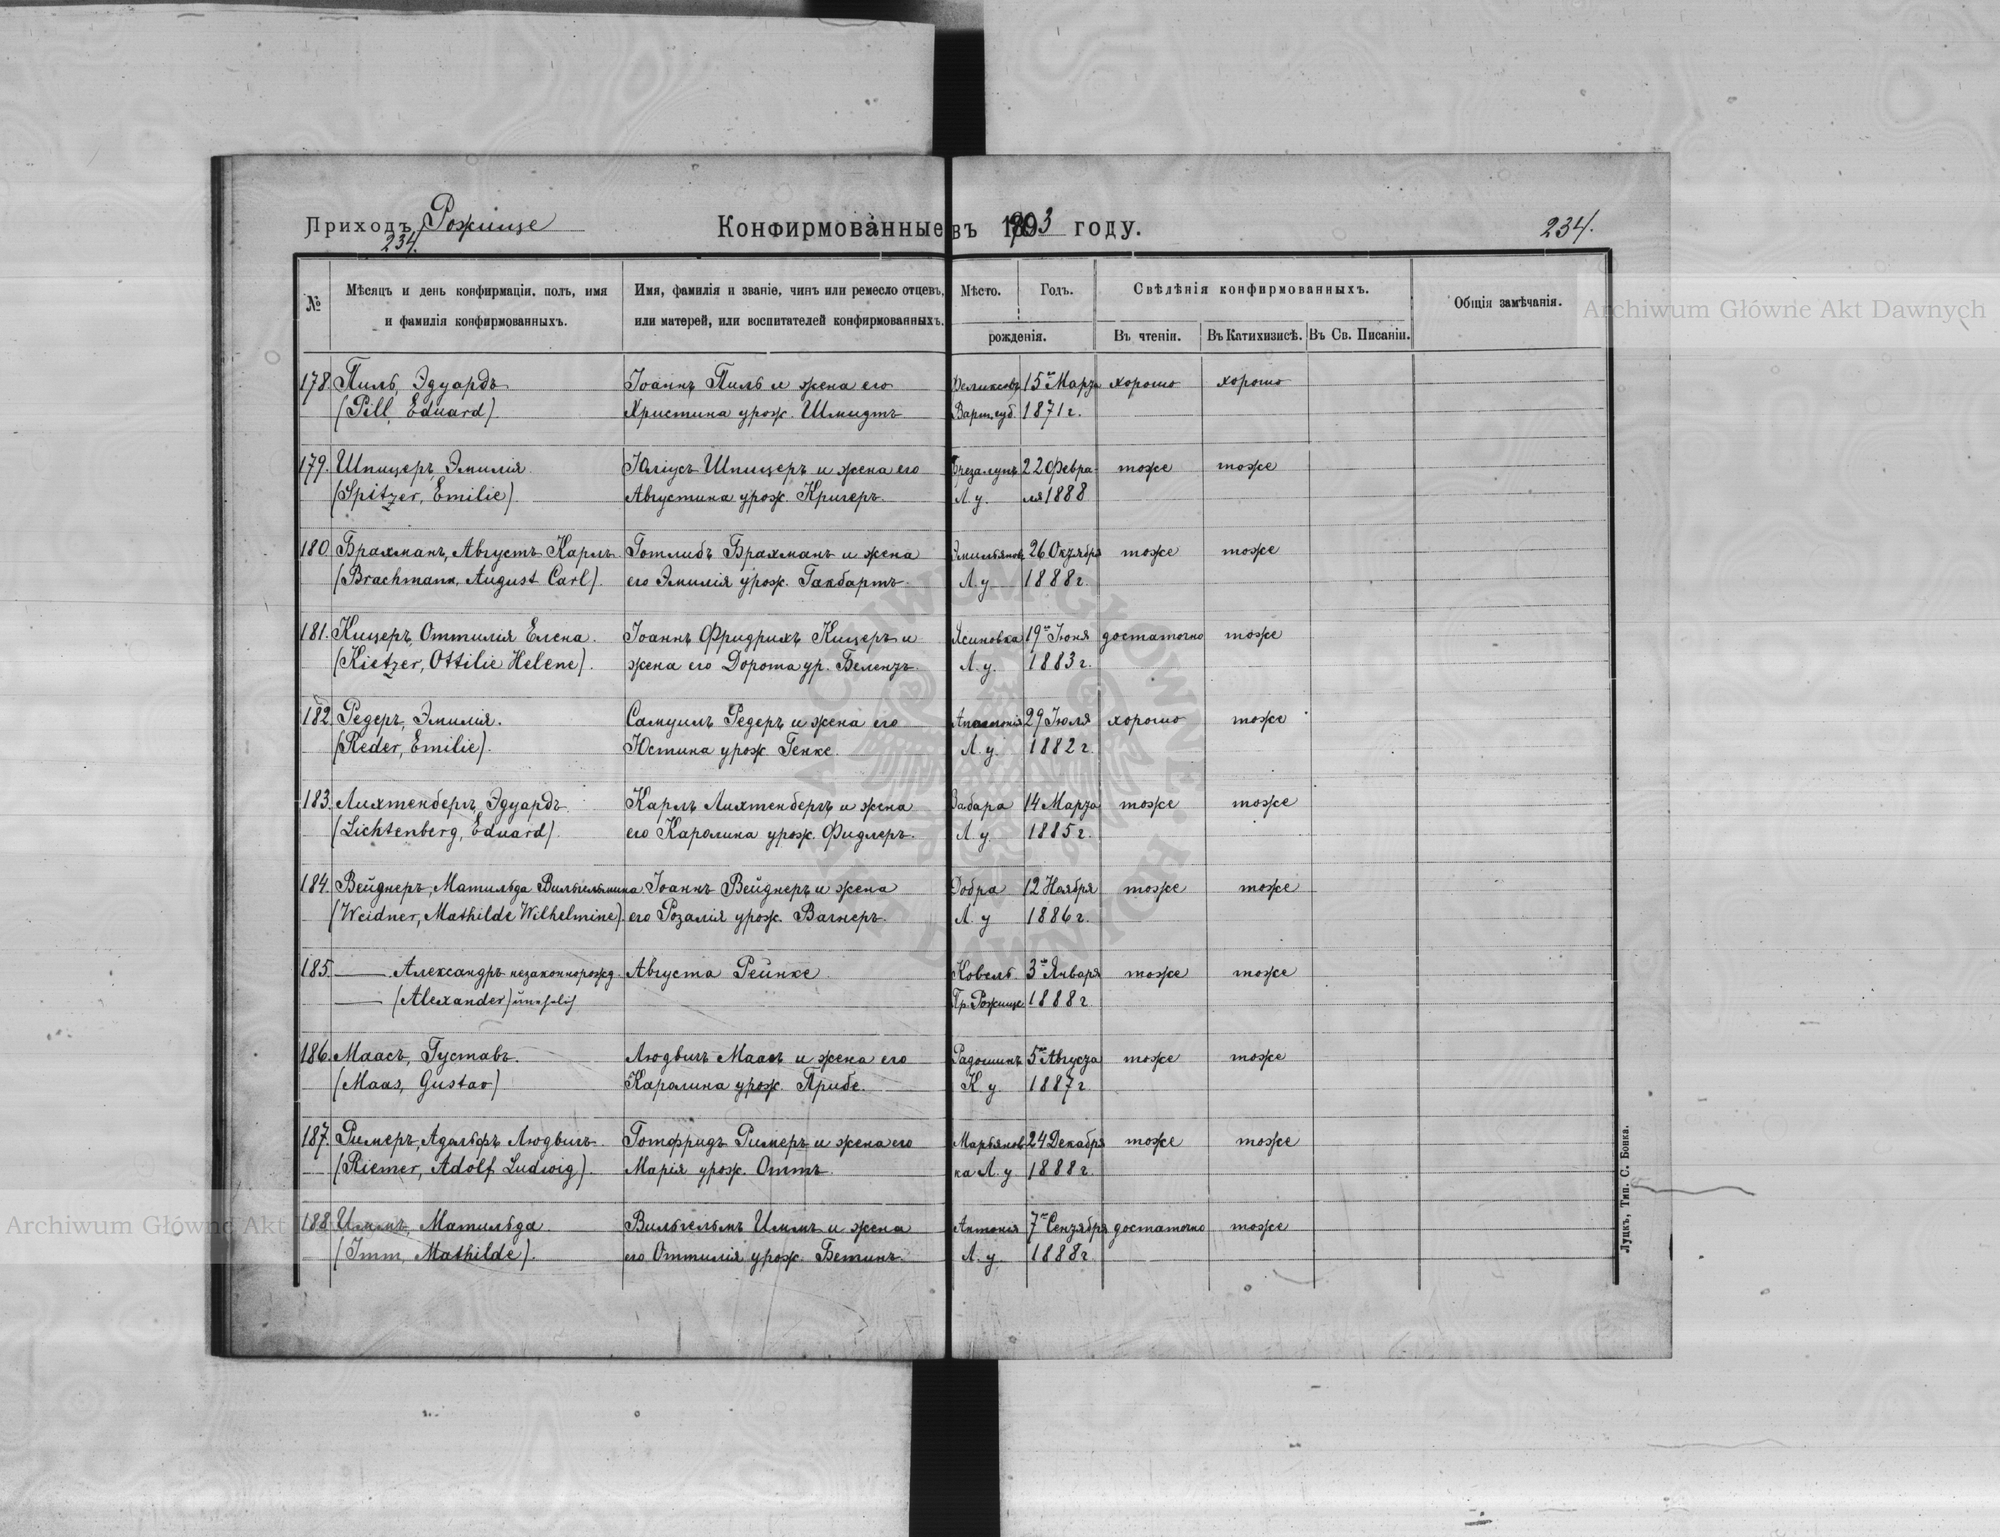 Приходъ Рожище
234.
Конфирмованные въ 1903 году.
234.
№
Мѣсяцъ и день конфирмаціи, полъ, имя
и фамилія конфирмованныхъ.
Имя, фамилія и званіе, чинъ или ремесло отцевъ,
или матерей, или воспитателей конфирмованныхъ.
Мѣсто.
Годъ.
рожденія.
Свѣдѣнія конфирмованныхъ.
Въ чтеніи.
Въ Катихизисѣ.
Въ Св. Писаніи.
Общія замѣчанія.
178. Пилль, Эдуардъ Іоаннъ Пилль и жена его 15го Марта хорошо хорошо
(Pill, Eduard). Христина урож. Шмидтъ Варш. губ. 1871 г.
179. Шпицеръ, Эмилія Юліусъ Шпицеръ и жена его 22 Февра- тоже тоже
(Spitzer, Emilie). Августина урож. Кригеръ. Л. у. ля 1888
180. Брахманъ, Августъ Карлъ. Готлибъ Брахманъ и жена Эмильянов. 26 Октября тоже тоже
(Brachmann, August Carl). его Эмилія урож. Гакбартъ. Л. у. 1888 г.
181. Кицеръ, Оттилія Елена. Іоаннъ Фридрихъ Кицеръ и Ясиновка 19го Іюня достаточно тоже
(Kietzer, Ottilie Helene). жена его Дорота ур. Беленъ. Л. у. 1883 г.
182. Редеръ, Эмилія. Самуилъ Редеръ и жена его Аполонія 29 Іюля хорошо тоже
(Reder, Emilie). Юстина урож. Генке. Л. у. 1882 г.
183. Лихтенбергъ, Эдуардъ. Карлъ Лихтенбергъ и жена Забара 14 Марта тоже тоже
(Lichtenberg, Eduard). его Каролина урож. Фидлеръ. Л. у. 1885 г.
184. Вейднеръ, Матильда Вильгельмина. Іоаннъ Вейднеръ и жена Добра 12 Ноября тоже тоже
(Weidner, Mathilde Wilhelmine). его Розалія урож. Вагнеръ. Л. у 1886 г.
185. — Александръ незаконнорожд. Августа Рейнке. Ковель. 3го Января тоже тоже
— (Alexander) unehelich Пр. Рожище 1888 г.
186. Маасъ, Густавъ. Людвигъ Маасъ и жена его Радошинъ 5го Августа тоже тоже
(Maas, Gustav) Каролина урож. Прибе. К. у. 1887 г
187. Римеръ, Адольфъ Людвигъ. Готфридъ Римеръ и жена его Марьянов- 24 Декабря тоже тоже
(Riemer, Adolf Ludwig). Марія урож. Оттъ. ка Л. у 1888 г.
188. Иммъ, Матильда. Вильгельмъ Иммъ и жена Антонія 7го Сентября достаточно тоже
(Imm, Mathilde). его Оттилія урож. Бетинъ. Л. у. 1888 г.
Луцкъ, Тип. С. Бонка.
Archiwum Główne Akt Dawnych
Archiwum Główne Akt
ARCHIWUM GŁÓWNE AKT DAWNYCH